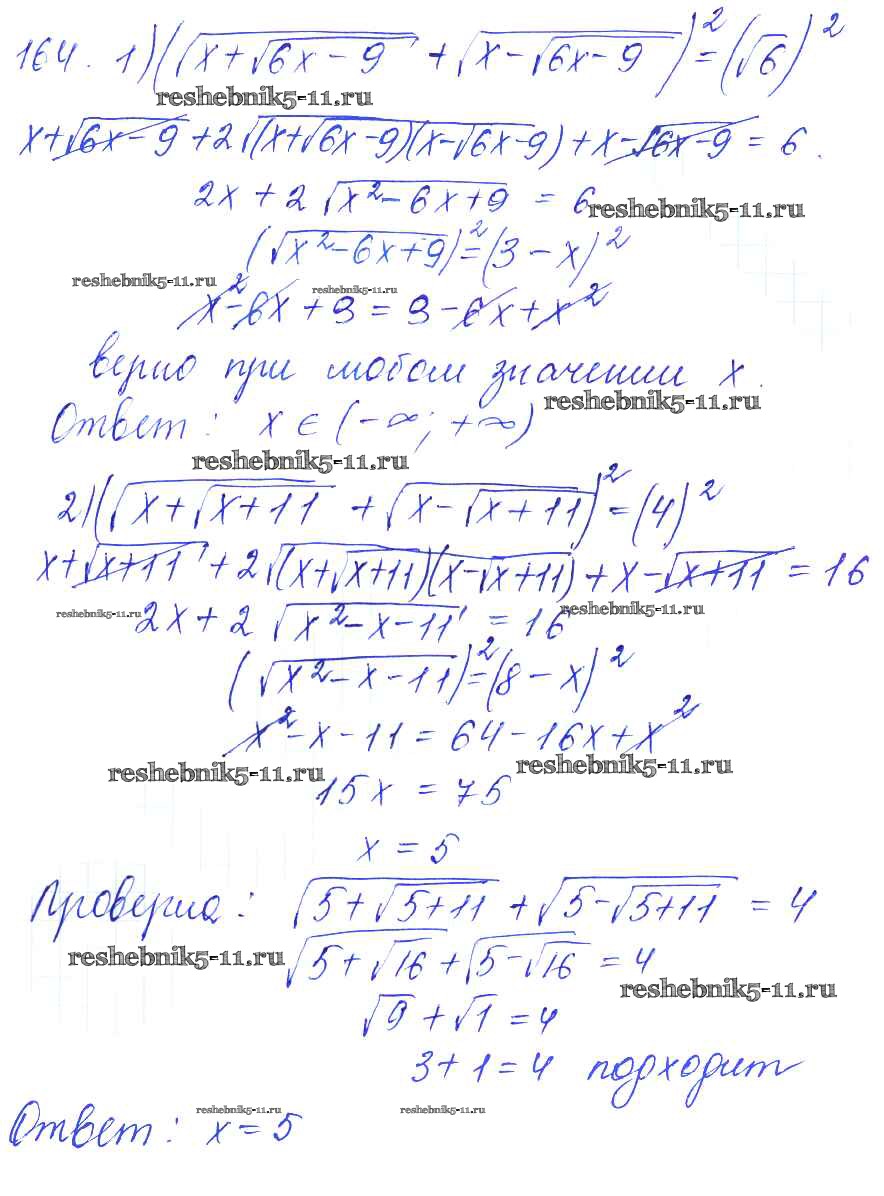 164. 1) (√(x+√(6x-9)) + √(x-√(6x-9)))² = (√6)²
reshebnik5-11.ru
x+√(6x-9) + 2√((x+√(6x-9))(x-√(6x-9))) + x-√(6x-9) = 6.
2x + 2√(x²-6x+9) = 6
reshebnik5-11.ru
(√(x²-6x+9))² = (3-x)²
reshebnik5-11.ru reshebnik5-11.ru
x²-6x+9 = 9-6x+x²
верно при любом значении x.
reshebnik5-11.ru
Ответ: x ∈ (-∞; +∞)
reshebnik5-11.ru
2) (√(x+√(x+11)) + √(x-√(x+11)))² = (4)²
x+√(x+11) + 2√((x+√(x+11))(x-√(x+11))) + x-√(x+11) = 16
reshebnik5-11.ru reshebnik5-11.ru
2x + 2√(x²-x-11) = 16
(√(x²-x-11))² = (8-x)²
x²-x-11 = 64-16x+x²
reshebnik5-11.ru reshebnik5-11.ru
15x = 75
x = 5
Проверка: √(5+√(5+11)) + √(5-√(5+11)) = 4
reshebnik5-11.ru
√(5+√16) + √(5-√16) = 4
reshebnik5-11.ru
√9 + √1 = 4
3+1 = 4 подходит
reshebnik5-11.ru reshebnik5-11.ru
Ответ: x = 5